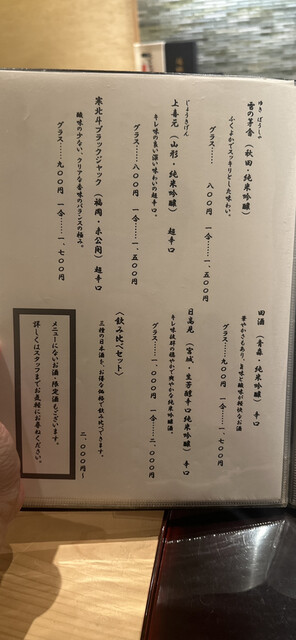 ゆき ぼうしゃ
雪の茅舎 (秋田・純米吟醸)
ふくよかでスッキリとした味わい。
グラス……八〇〇円 一合……一、五〇〇円
じょうきげん
上喜元 (山形・純米吟醸) 超辛口
キレ味の良い深い味わいの超辛口。
グラス……八〇〇円 一合……一、五〇〇円
寒北斗ブラックジャック (福岡・未公開) 超辛口
酸味の少ない、クリアな香味のバランスの極み。
グラス……九〇〇円 一合……一、七〇〇円
田酒 (青森・純米吟醸) 辛口
華やかさもあり、旨味と酸味が軽快なお酒
グラス……九〇〇円 一合……一、七〇〇円
日高見 (宮城・芳醇辛口純米吟醸) 辛口
キレ味抜群の穏やかで爽やかな純米吟醸酒。
グラス……一、〇〇〇円 一合……二、〇〇〇円
〈飲み比べセット〉
三種の日本酒を、お得な価格で飲み比べできます。
二、〇〇〇円ー
メニューにないお酒・限定酒もございます。
詳しくはスタッフまでお気軽にお尋ねください。